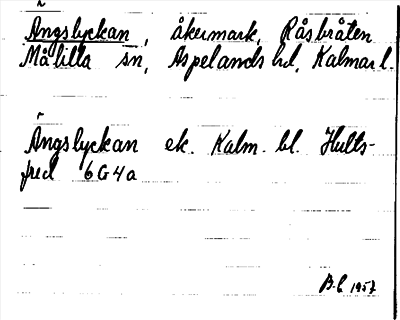 Ängslyckan, åkermark, Råsbråten
Målilla sn, Aspelands hd, Kalmar l.
Ängslyckan ek. Kalm. bl. Hults-
fred 6 G 4 a
B.E 1957